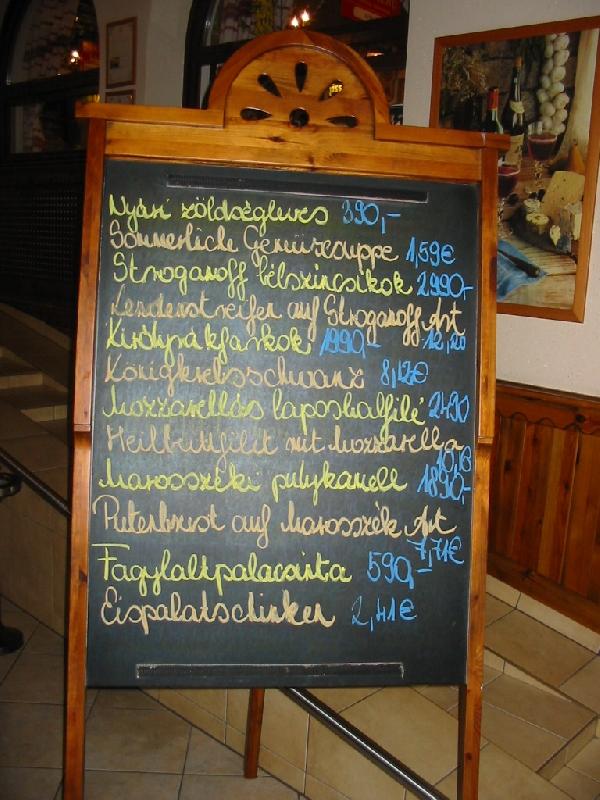 Nyári zöldségleves 390,-
Sommerliche Gemüsesuppe 1,59€
Stroganoff bélszíncsíkok 2990,-
Lendenstreifen auf Stroganoff Art
12,20
Királyrákfarkok 1990,-
Königkrebsschwanz 8,12€
Mozzarellás laposhalfilé 2490
Heilbuttfilit mit Mozzarella
10,16
Marosszéki pulykamell 1890,-
Putenbrust auf Marosszék Art
7,71€
Fagylaltpalacsinta 590,-
Eispalatschinken 2,41€